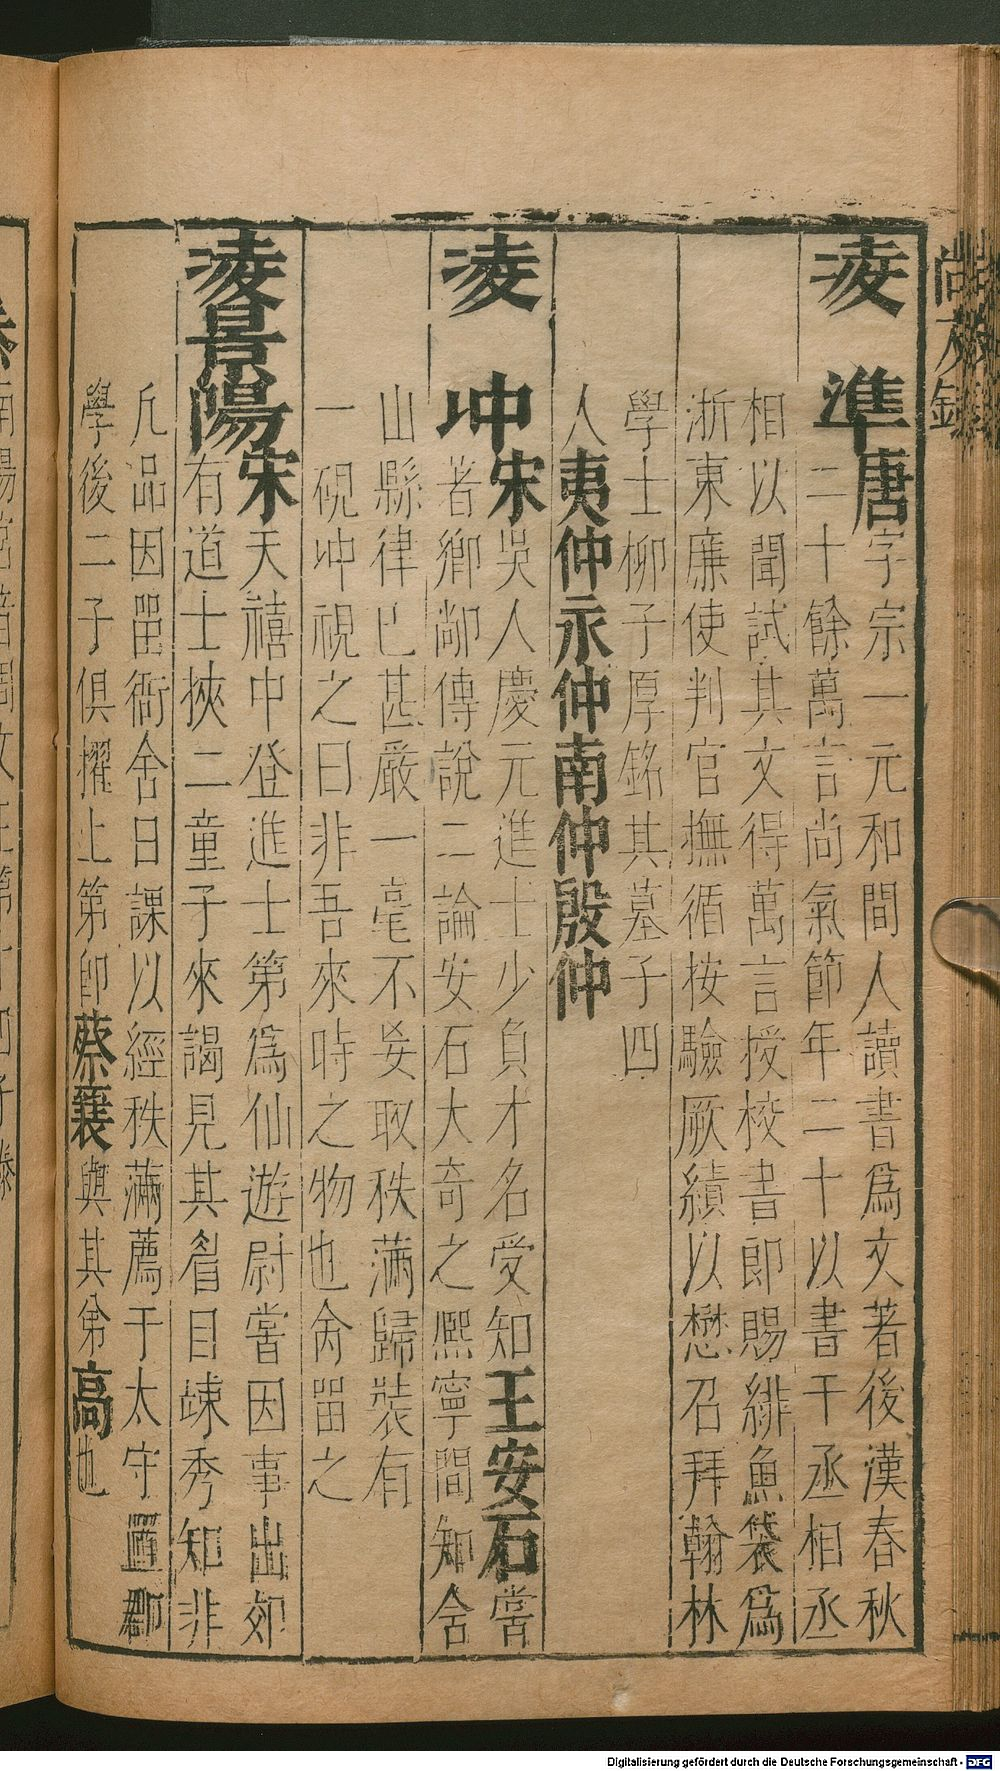 凌 準唐字宗一元和間人讀書爲文著後漢春秋
二十餘萬言尚氣節年二十以書干丞相丞
相以聞試其文得萬言授校書郎賜緋魚袋爲
浙東廉使判官撫循按驗厥績以懋召拜翰林
學士柳子厚銘其墓子四
人夷仲永仲南仲殷仲
凌 坤宋吳人慶元進士少負才名受知王安石嘗
著鄉鄰傳說二論安石大奇之熈寧間知舍
山縣律已甚嚴一毫不妄取秩滿歸裝有
一硯坤視之曰非吾來時之物也舍畱之
凌景陽宋天禧中登進士第爲仙遊尉嘗因事出郊
有道士挾二童子來謁見其眉目竦秀知非
凢品因畱衙舍日課以經秩滿薦于太守置郡
學後二子俱擢上第卽蔡襄與其弟高也
尚友錄
Digitalisierung gefördert durch die Deutsche Forschungsgemeinschaft - DFG